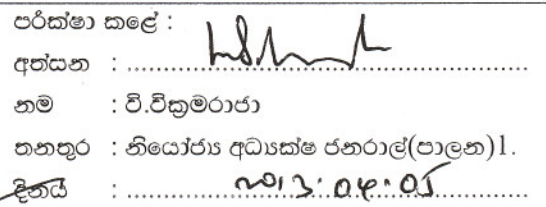 පරීක්ෂා කළේ :
අත්සන : ..................................................
නම : වි.වික්‍රමරාජා
තනතුර : නියෝජ්‍ය අධ්‍යක්ෂ ජනරාල්(පාලන)1.
දිනය : 2013.04.05